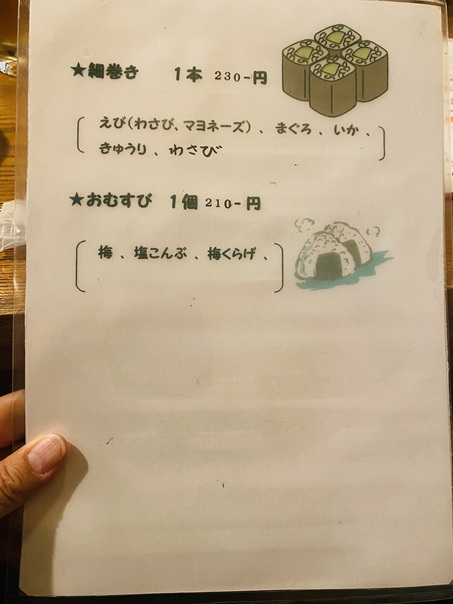 ★細巻き　１本 230-円
えび(わさび、マヨネーズ) 、まぐろ 、いか 、
きゅうり 、わさび
★おむすび　１個 210-円
梅 、塩こんぶ 、梅くらげ 、